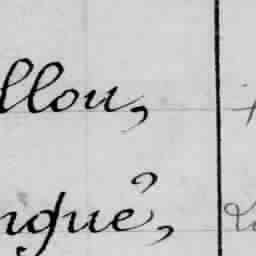 llou,
ngué,